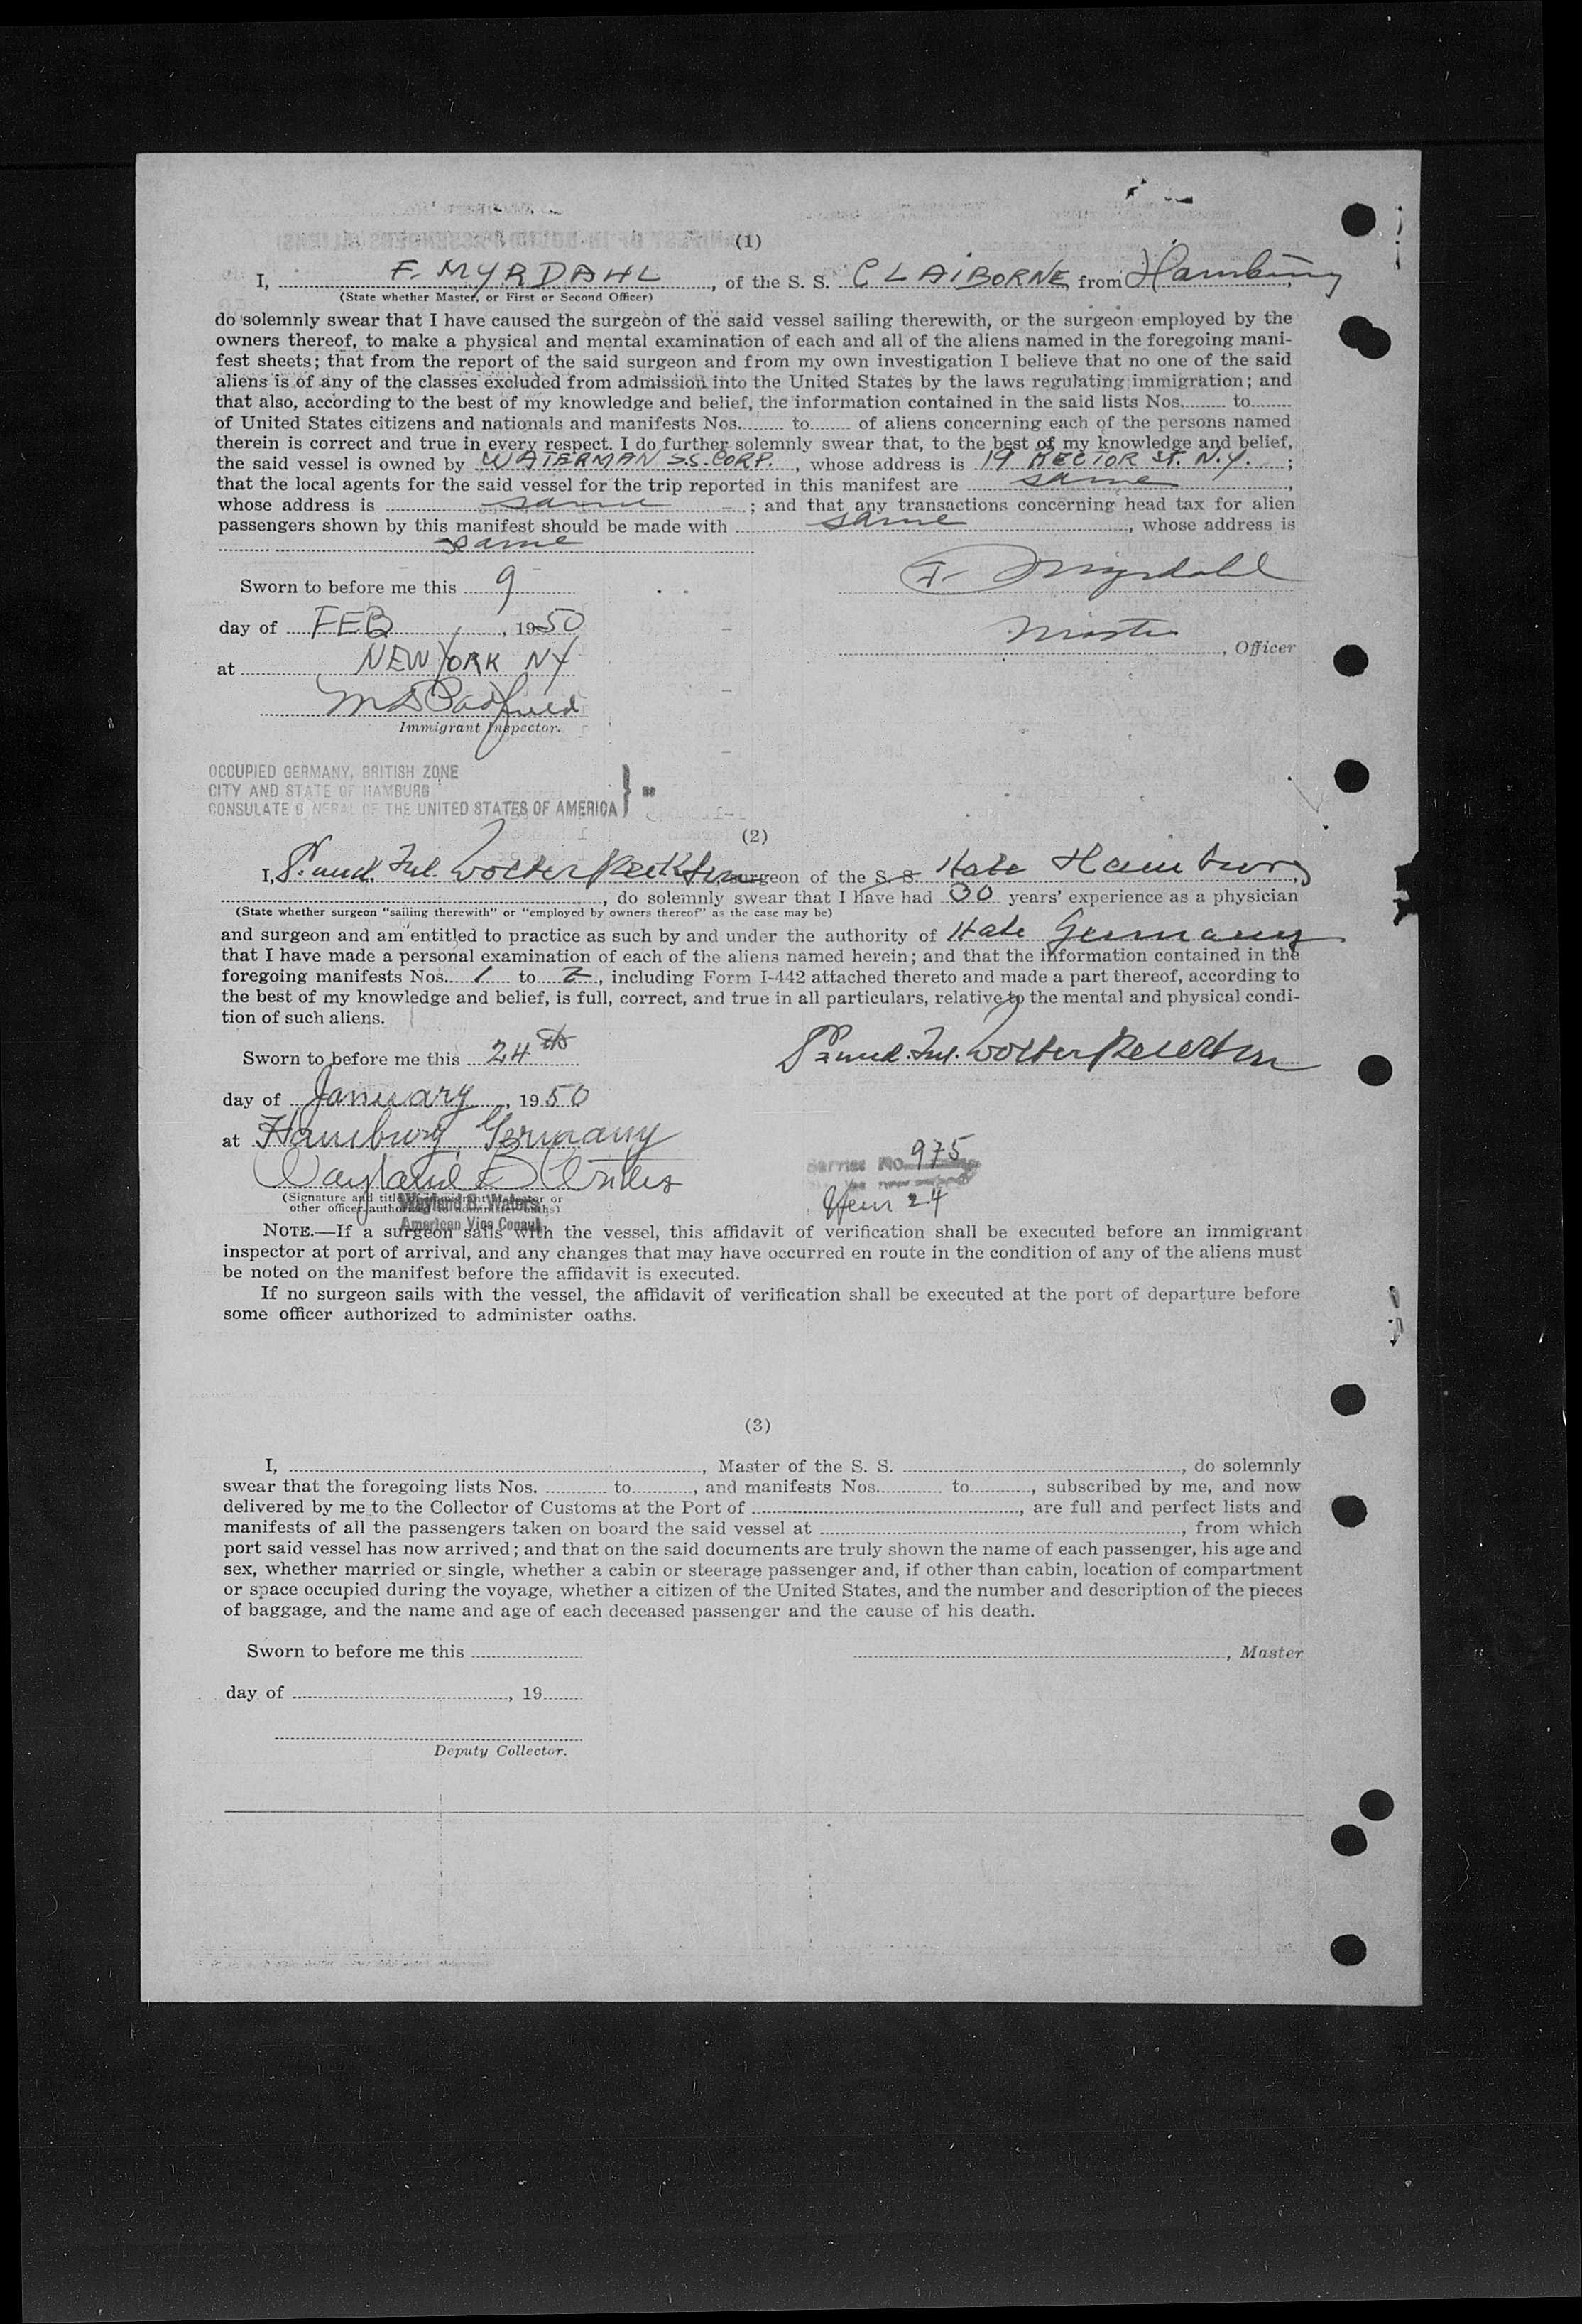 (1)
I, F. MYRDAHL, of the S. S. CLAIBORNE, from Hamburg
(State whether Master, or First or Second Officer)
do solemnly swear that I have caused the surgeon of the said vessel sailing therewith, or the surgeon employed by the
owners thereof, to make a physical and mental examination of each and all of the aliens named in the foregoing mani-
fest sheets; that from the report of the said surgeon and from my own investigation I believe that no one of the said
aliens is of any of the classes excluded from admission into the United States by the laws regulating immigration; and
that also, according to the best of my knowledge and belief, the information contained in the said lists Nos. to
of United States citizens and nationals and manifests Nos. to of aliens concerning each of the persons named
therein is correct and true in every respect. I do further solemnly swear that, to the best of my knowledge and belief,
the said vessel is owned by WATERMAN S.S. CORP., whose address is 19 RECTOR ST. N.Y.;
that the local agents for the said vessel for the trip reported in this manifest are same,
whose address is same; and that any transactions concerning head tax for alien
passengers shown by this manifest should be made with same, whose address is
same
Sworn to before me this 9
F. Myrdahl
day of FEB, 1950
Master, Officer
at NEW YORK NY
Immigrant Inspector.
OCCUPIED GERMANY, BRITISH ZONE
CITY AND STATE OF HAMBURG
CONSULATE GENERAL OF THE UNITED STATES OF AMERICA } ss
(2)
I, surgeon of the S. S. State Hamburg
, do solemnly swear that I have had 30 years' experience as a physician
(State whether surgeon "sailing therewith" or "employed by owners thereof" as the case may be)
and surgeon and am entitled to practice as such by and under the authority of State Germany
that I have made a personal examination of each of the aliens named herein; and that the information contained in the
foregoing manifests Nos. 1 to 2, including Form I-442 attached thereto and made a part thereof, according to
the best of my knowledge and belief, is full, correct, and true in all particulars, relative to the mental and physical condi-
tion of such aliens.
Sworn to before me this 24th
day of January, 1950
at Hamburg, Germany
Wayland B Waters
Service No. 975
24
(Signature and title of immigrant inspector or
other officer authorized to administer oaths)
Wayland B. Waters
American Vice Consul
NOTE.—If a surgeon sails with the vessel, this affidavit of verification shall be executed before an immigrant
inspector at port of arrival, and any changes that may have occurred en route in the condition of any of the aliens must
be noted on the manifest before the affidavit is executed.
If no surgeon sails with the vessel, the affidavit of verification shall be executed at the port of departure before
some officer authorized to administer oaths.
(3)
I, , Master of the S. S. , do solemnly
swear that the foregoing lists Nos. to , and manifests Nos. to , subscribed by me, and now
delivered by me to the Collector of Customs at the Port of , are full and perfect lists and
manifests of all the passengers taken on board the said vessel at , from which
port said vessel has now arrived; and that on the said documents are truly shown the name of each passenger, his age and
sex, whether married or single, whether a cabin or steerage passenger and, if other than cabin, location of compartment
or space occupied during the voyage, whether a citizen of the United States, and the number and description of the pieces
of baggage, and the name and age of each deceased passenger and the cause of his death.
Sworn to before me this
, Master
day of , 19
Deputy Collector.